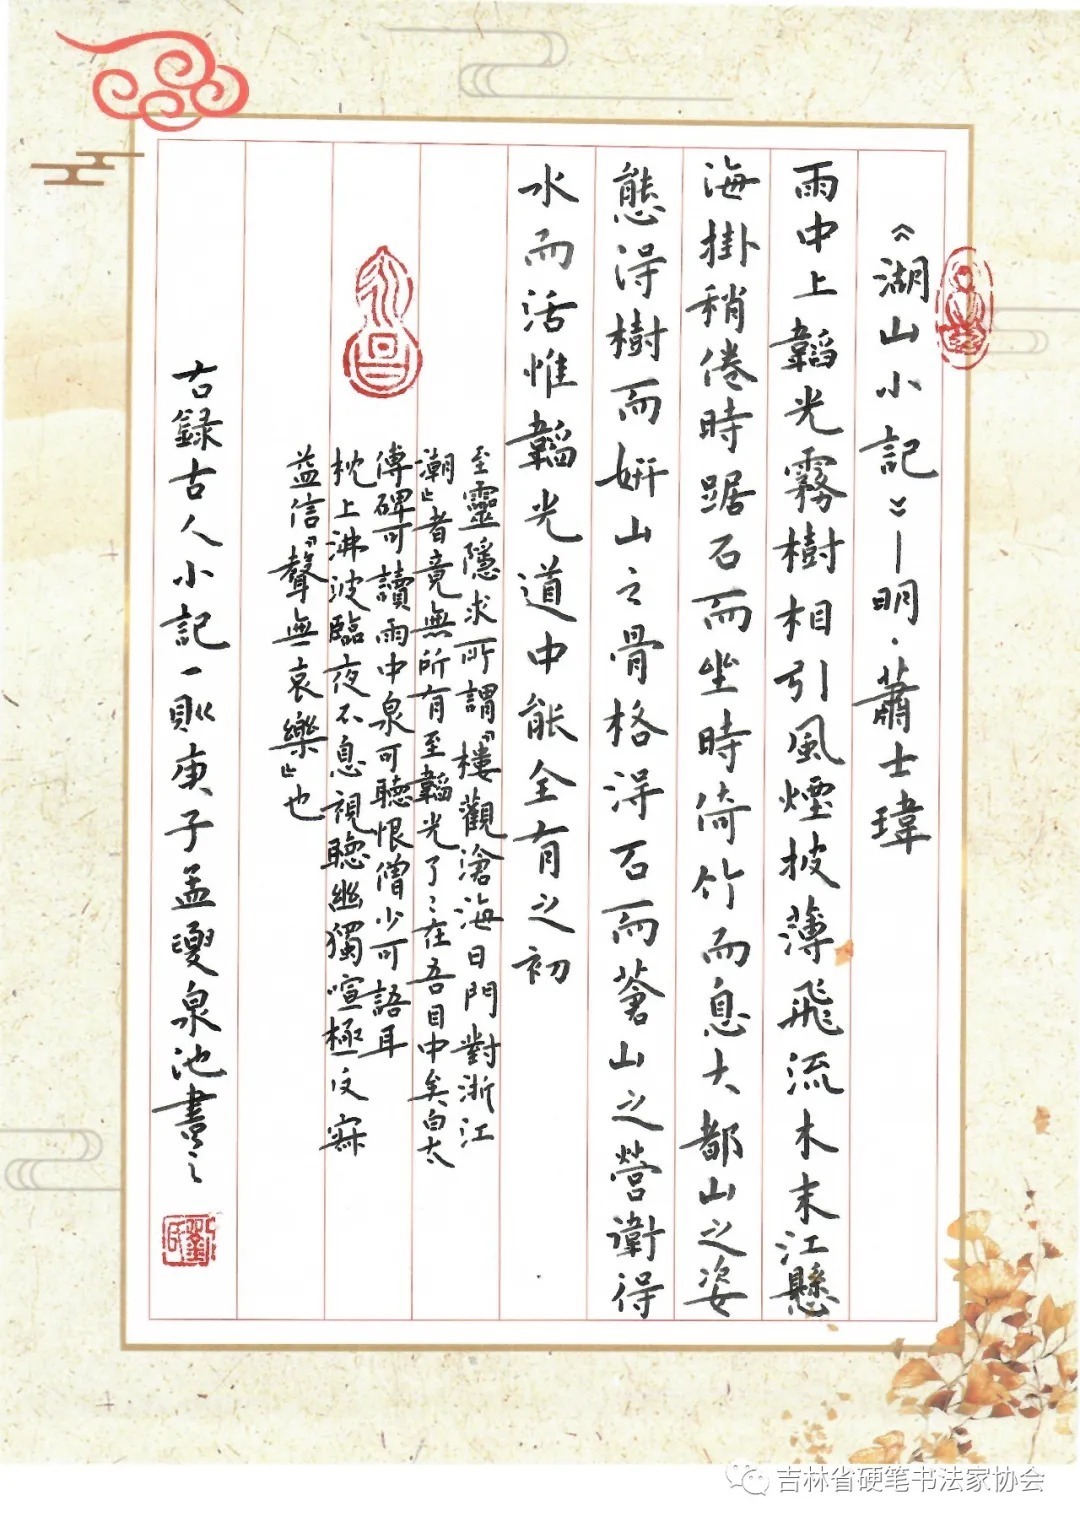 《湖山小記》—明·蕭士瑋
雨中上韜光霧樹相引風煙披薄飛流木末江懸
海掛稍倦時踞石而坐時倚竹而息大都山之姿
態得樹而妍山之骨格得石而蒼山之營衛得
水而活惟韜光道中能全有之初
至靈隱求所謂『樓觀滄海日門對浙江
潮』者竟無所有至韜光了々在吾目中矣白太
傅碑可讀雨中泉可聽恨僧少可語耳
枕上沸波臨夜不息視聽幽獨喧極反寂
益信『聲無哀樂』也
古錄古人小記一則庚子孟夏泉池書之
劉
吉林省硬笔书法家协会